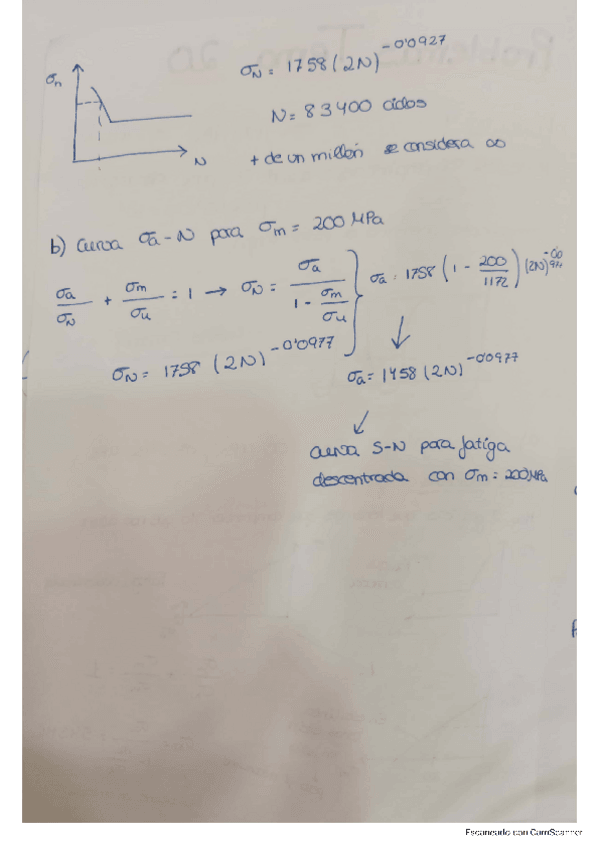 σn
N
σN = 1758 (2N)^-0'0927
N = 83400 ciclos
+ de un millón se considera ∞
b) Curva σa-N para σm = 200 MPa
σa/σN + σm/σu = 1 → σN = σa/(1 - σm/σu)
σa = 1758 (1 - 200/1172) (2N)^-0'0977
σN = 1758 (2N)^-0'0977
σa = 1458 (2N)^-0'0977
curva S-N para fatiga
descentrada con σm = 200MPa
Escaneado con CamScanner